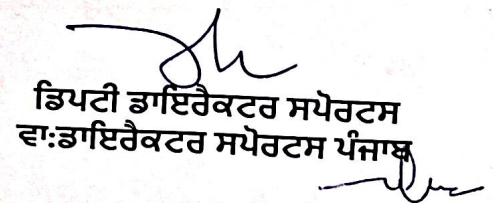 ਡਿਪਟੀ ਡਾਇਰੈਕਟਰ ਸਪੋਰਟਸ
ਵਾ:ਡਾਇਰੈਕਟਰ ਸਪੋਰਟਸ ਪੰਜਾਬ